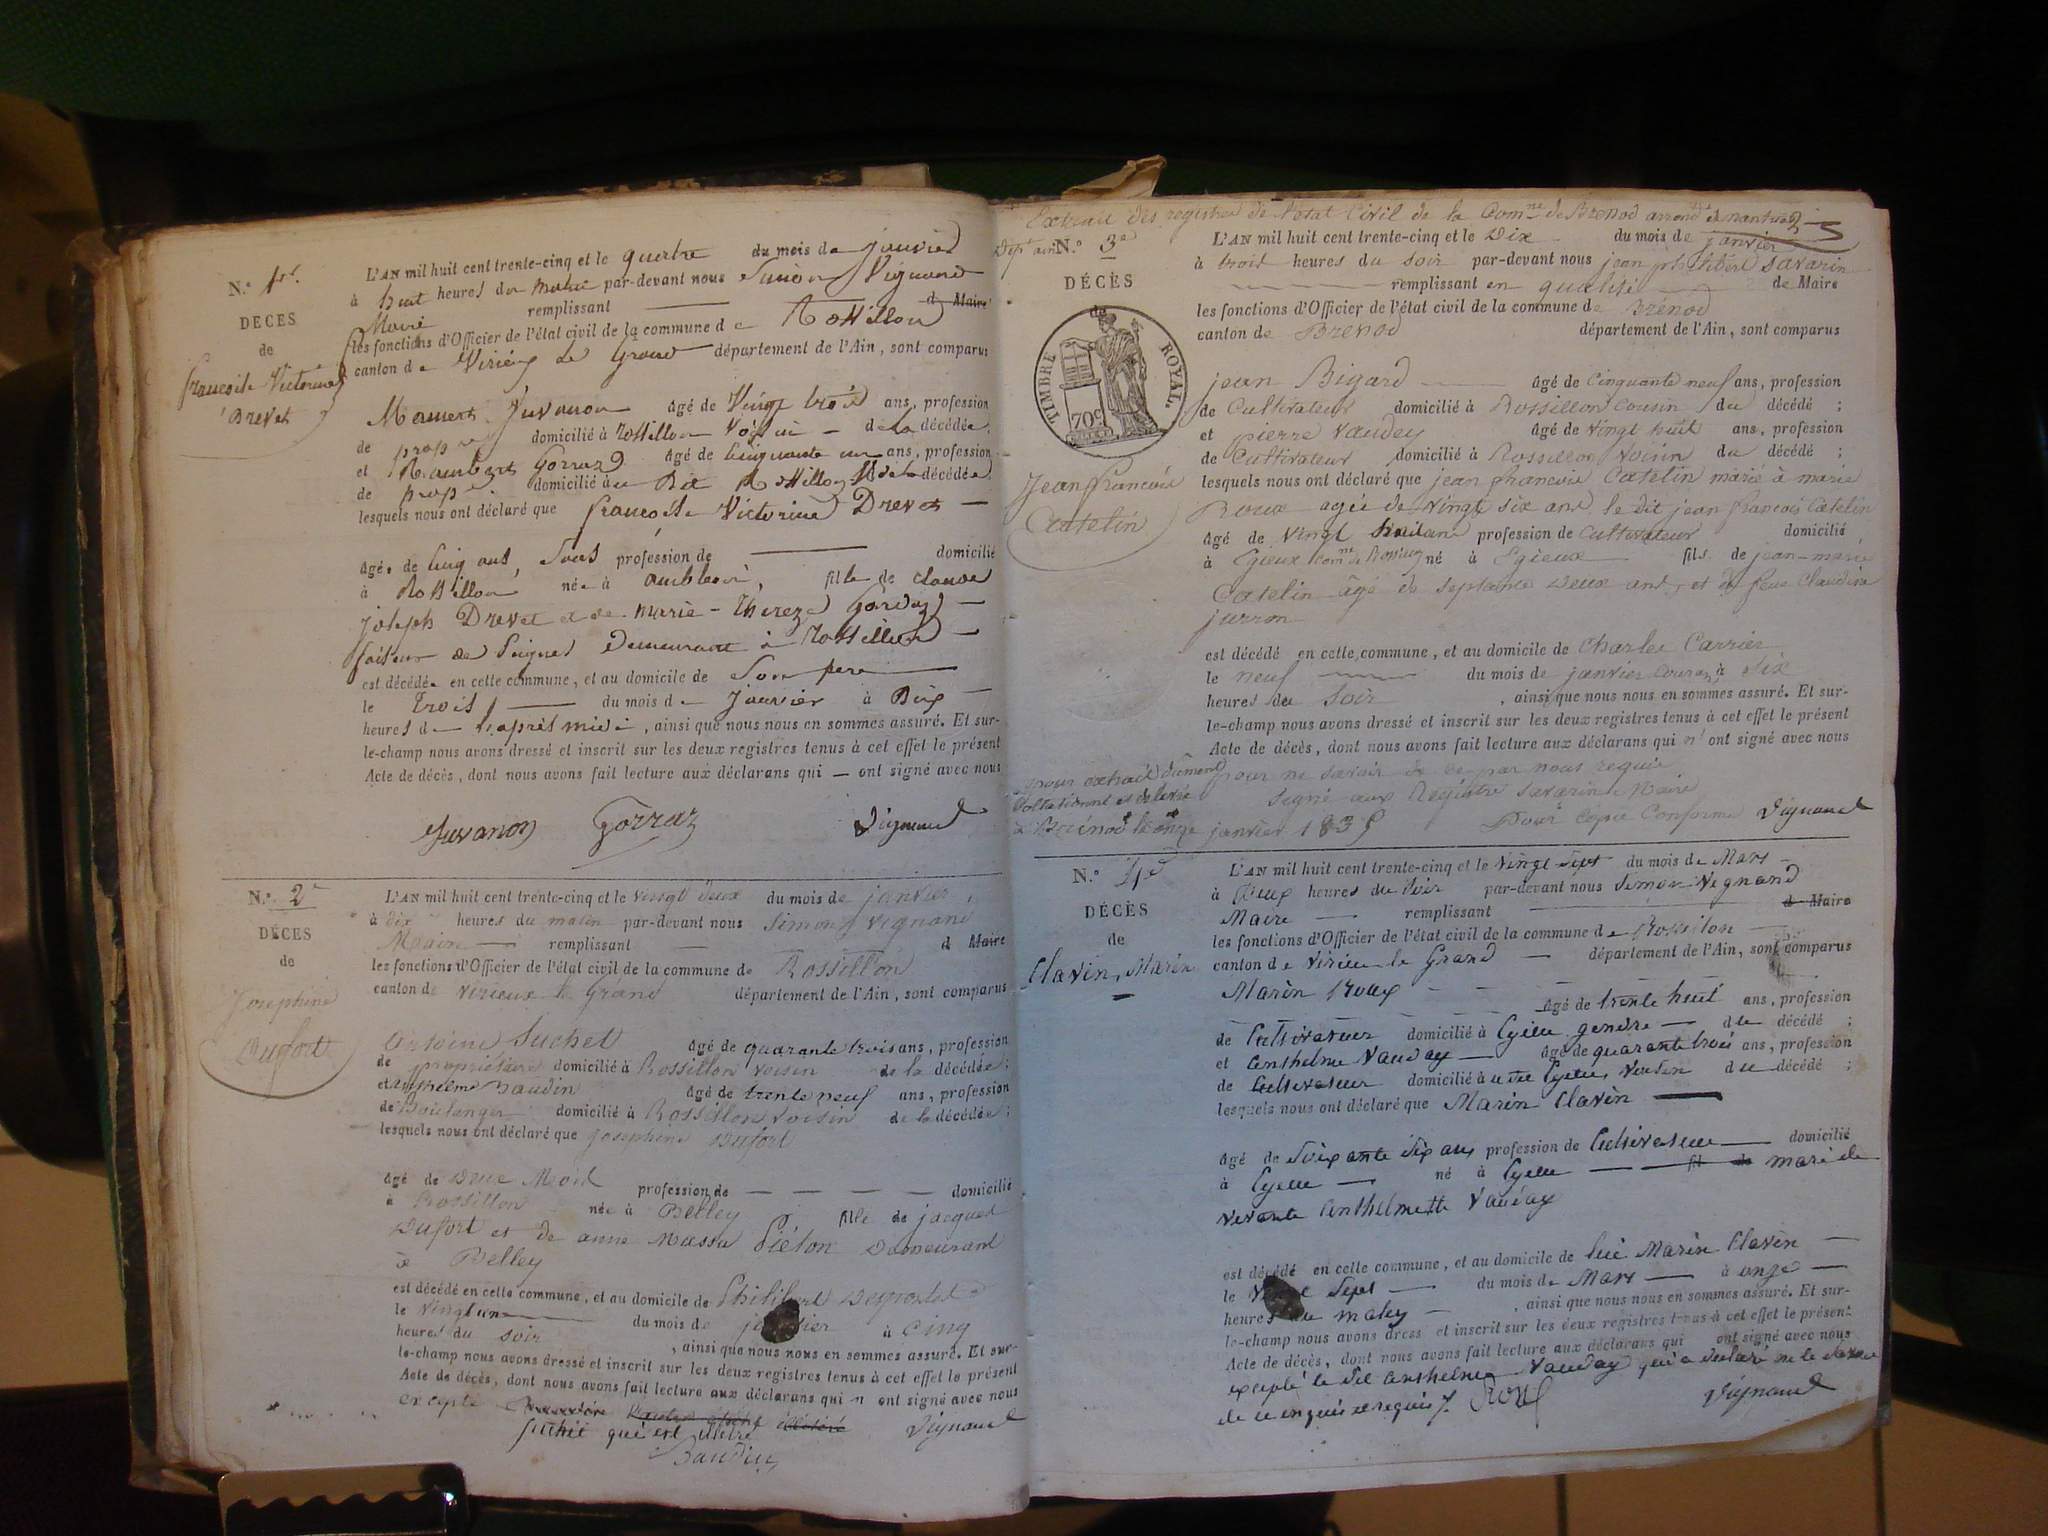 N.° 1er
DÉCÈS
de
françoise Victorine
Drevet
L'AN mil huit cent trente-cinq et le quatre du mois de janvier
à huit heures du matin par-devant nous Simon Vignand
Maire remplissant d Maire
les fonctions d'Officier de l'état civil de la commune de Rossillon
canton de Virieu le Grand département de l'Ain, sont comparus
Juvanon agé de Vingt trois ans, profession
de prop re domicilié à Rossillon Voisin de la décédée;
et Rambert Gorraz agé de Cinquante un ans, profession
de prop re domicilié au Rossillon de la décédée;
lesquels nous ont déclaré que françoise Victorine Drevet
agée de Cinq ans, Sans profession de domicilié
à Rossillon née à ambléon, fille de claude
joseph Drevet et de marie-Thereze Gorraz
faiseur de Peignes Demeurant à Rossillon
est décédée en cette commune, et au domicile de Son pere
le Trois du mois de Janvier à Dix
heures de l'après midi, ainsi que nous nous en sommes assuré. Et sur-
le-champ nous avons dressé et inscrit sur les deux registres tenus à cet effet le présent
Acte de décès, dont nous avons fait lecture aux déclarans qui ont signé avec nous
Juvanon Gorraz Vignand
N.° 2e
DÉCÈS
de
Josephine
Dufort
L'AN mil huit cent trente-cinq et le vingt deux du mois de janvier
à dix heures du matin par-devant nous Simon Vignand
Maire remplissant d Maire
les fonctions d'Officier de l'état civil de la commune de Rossillon
canton de Virieux le Grand département de l'Ain, sont comparus
Antoine Suchet agé de quarante trois ans, profession
de propriétaire domicilié à Rossillon voisin de la décédée;
et Anthelme Baudin agé de trente neuf ans, profession
de Boulanger domicilié à Rossillon voisin de la décédée;
lesquels nous ont déclaré que Josephine Dufort
agé de Deux Mois profession de domicilié
à Rossillon née à Belley fille de jacques
Dufort et de anne Massu Piéton Demeurant
à Belley
est décédé en cette commune, et au domicile de Philibert
le vingt un du mois de janvier à cinq
heures du soir, ainsi que nous nous en sommes assuré. Et sur-
le-champ nous avons dressé et inscrit sur les deux registres tenus à cet effet le présent
Acte de décès, dont nous avons fait lecture aux déclarans qui n ont signé avec nous
excepté
suchet qui est illétré Vignand
Baudin
Extrait des registres de l'état Civil de la Com.ne de Brenod arrond.t de nantua
Dép.t ain N.° 3e
DÉCÈS
de
TIMBRE ROYAL
70c
Jean françois
Catelin
L'AN mil huit cent trente-cinq et le Dix du mois de janvier
à trois heures du soir par-devant nous jean philibert savarin
remplissant en qualité de Maire
les fonctions d'Officier de l'état civil de la commune de Brénod
canton de Brenod département de l'Ain, sont comparus
jean Bigard agé de Cinquante neuf ans, profession
de Cultivateur domicilié à Rossillon Cousin du décédé;
et pierre Vaudey agé de vingt huit ans, profession
de Cultivateur domicilié à Rossillon voisin du décédé;
lesquels nous ont déclaré que jean françois Catelin marié à marie
Roux agée de vingt six ans, le dit jean françois Catelin
agé de vingt huit ans profession de Cultivateur domicilié
à Egieux com.ne de Rossillon né à Egieux fils de jean-marie
Catelin âgé de septante Deux ans, et de feue Claudine
jurron
est décédé en cette commune, et au domicile de Charles Carrier
le neuf du mois de janvier courant à six
heures du soir, ainsi que nous nous en sommes assuré. Et sur-
le-champ nous avons dressé et inscrit sur les deux registres tenus à cet effet le présent
Acte de décès, dont nous avons fait lecture aux déclarans qui n'ont signé avec nous
pour ne savoir de ce par nous requis
signé aux Registre savarin Maire
pour extrait dument
Collationné et délivré
à Brénod le onze janvier 1835 Pour Copie Conforme Vignand
N.° 4e
DÉCÈS
de
Clavin, Marin
L'AN mil huit cent trente-cinq et le vingt sept du mois de Mars
à Deux heures du soir par-devant nous Simon Vignand
Maire remplissant d Maire
les fonctions d'Officier de l'état civil de la commune de Rossillon
canton de Virieu le Grand département de l'Ain, sont comparus
Marin Roux agé de trente huit ans, profession
de Cultivateur domicilié à Egieu gendre du décédé;
et Anthelme Vauday agé de quarante trois ans, profession
de Cultivateur domicilié à u dit Egieu, Voisin du décédé;
lesquels nous ont déclaré que Marin Clavin
agé de Soixante Six ans profession de Cultivateur domicilié
à Egieu né à Egieu fil de mari de
vivante Anthelmette Vauday
est décédé en cette commune, et au domicile de lui Marin Clavin
le vingt Sept du mois de Mars à onze
heures du matin, ainsi que nous nous en sommes assuré. Et sur-
le-champ nous avons dressé et inscrit sur les deux registres tenus à cet effet le présent
Acte de décès, dont nous avons fait lecture aux déclarans qui ont signé avec nous
excepté le dit Anthelme Vauday qui a déclaré ne le savoir
de ce enquis et requis. Roux Vignand